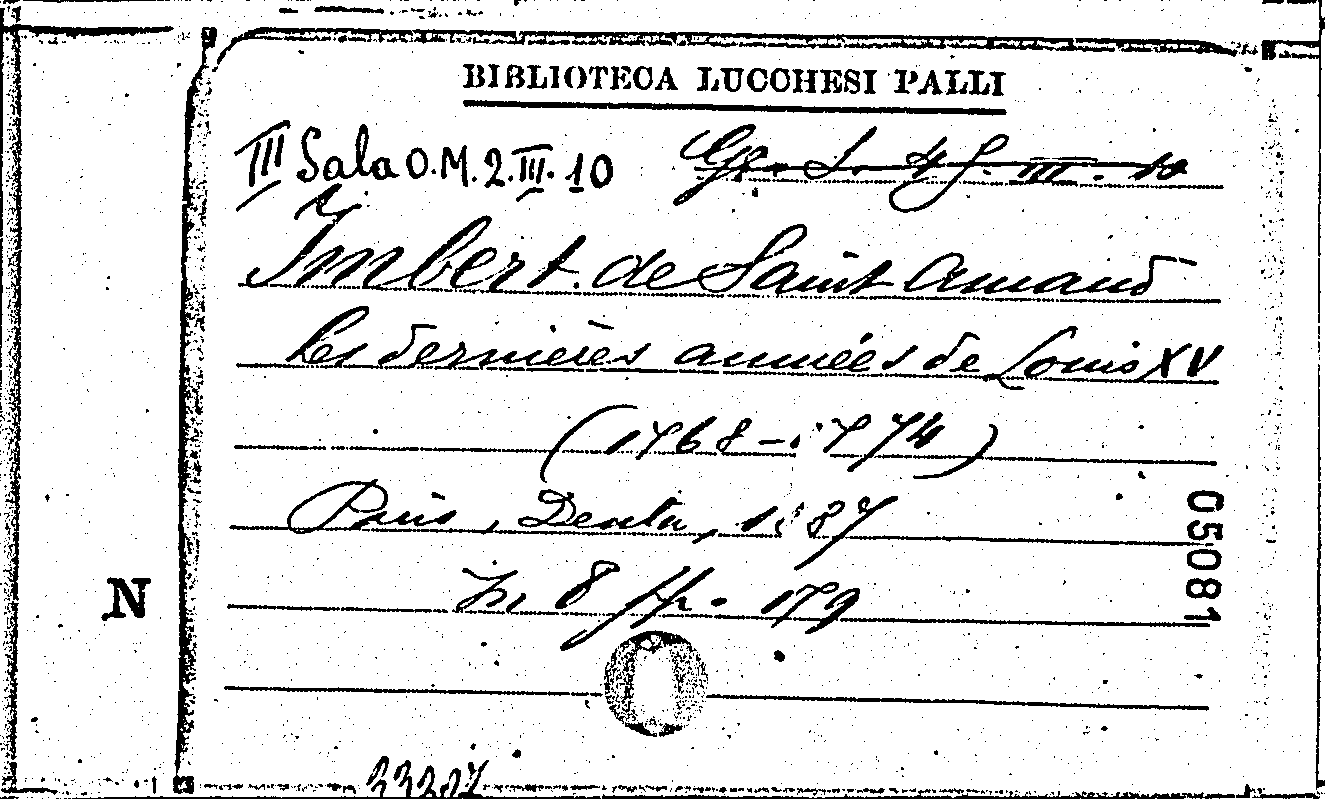 BIBLIOTECA LUCCHESI PALLI
III Sala O.M.2.III.10 Gr. S. 4 S. III. 10
Imbert de Saint Amand
Les dernières années de Louis XV
(1768-1774)
Paris, Dentu, 1887
In 8 pp. 179
05081
N